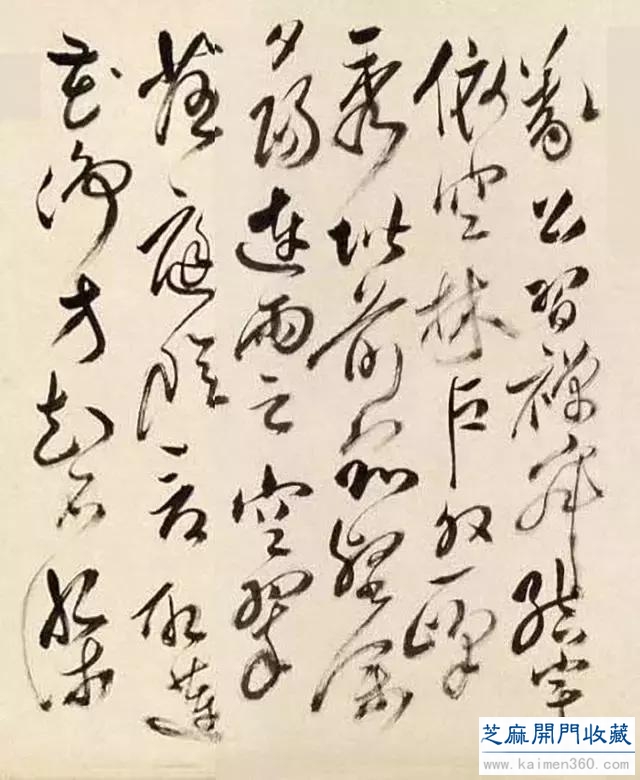 義公習禪寂結宇
依空林戶外一峰
秀階前眾壑深
夕陽連雨足空翠
落庭陰看取蓮
花淨方知不染
芝麻開門收藏
www.kaimen360.com